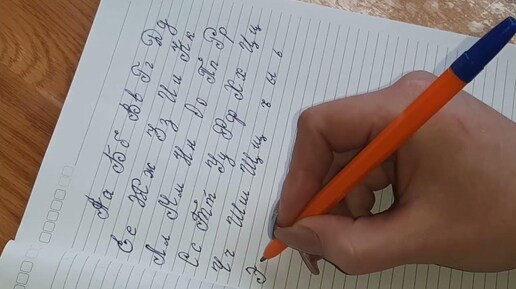 Аа Бб Вв Гг Дд
Ее Жж Зз Ии Кк
Лл Мм Нн Оо Пп Рр
Сс Тт Уу Фф Хх Цц
Чч Шш Щщ ъ ы ь
Э